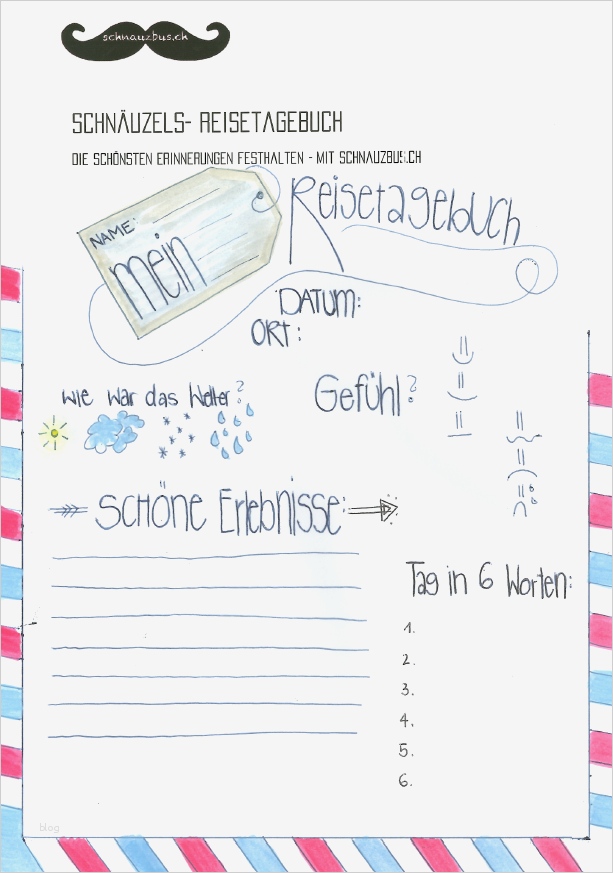 schnauzbus.ch
SCHNÄUZELS- REISETAGEBUCH
DIE SCHÖNSTEN ERINNERUNGEN FESTHALTEN - MIT SCHNAUZBUS.CH
NAME:
mein
Reisetagebuch
DATUM:
ORT:
Wie war das Wetter?
Gefühl?
SCHÖNE Erlebnisse:
Tag in 6 Worten:
1.
2.
3.
4.
5.
6.
blog